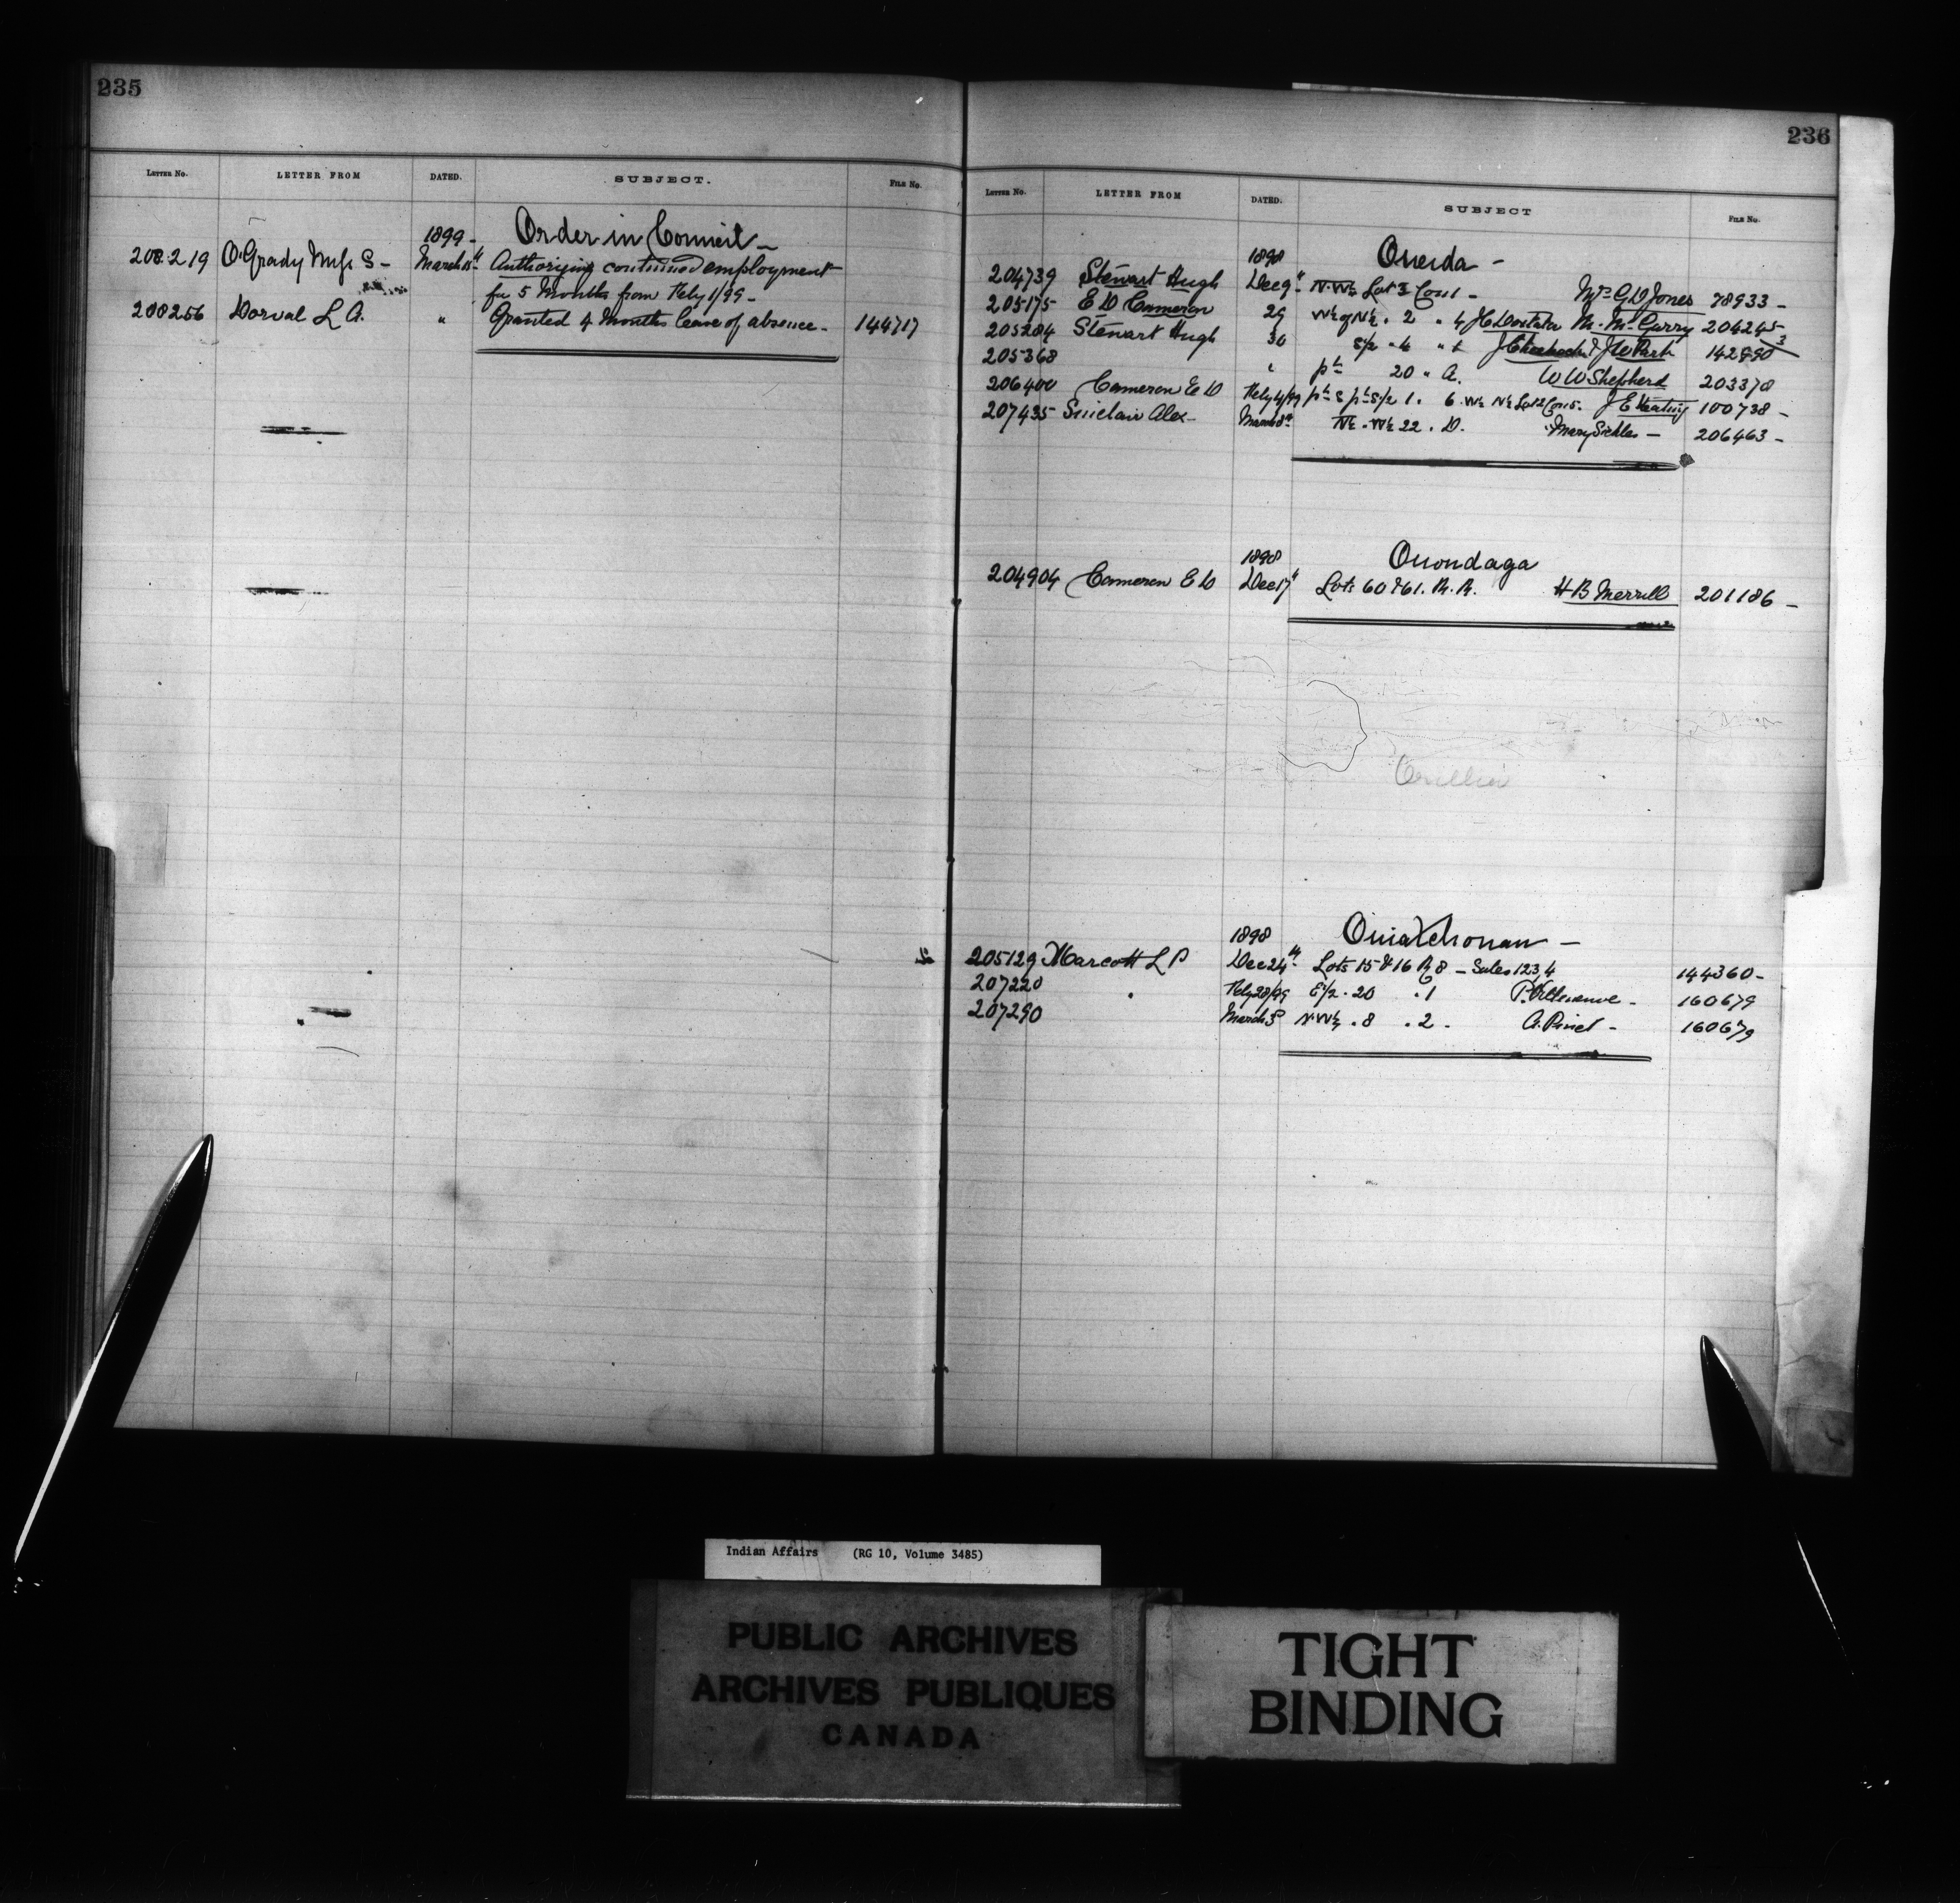 235
LETTER No. LETTER FROM DATED. SUBJECT. FILE No.
1899 - Order in Council -
208219 O'Grady Miss S - March 15th Authorizing continued employment
for 5 Months from Feby 1/99 -
208256 Dorval L A. " Granted 4 Months leave of absence - 144717
236
LETTER No. LETTER FROM DATED. SUBJECT FILE No.
1898 Oneida -
204739 Stewart Hugh Dec 9th N.W¼ Lot 3 Con 1 - Mrs G W Jones 78933 -
205175 E D Cameron 29 W½ of N½ . 2 " 4 M. McGurry 204245
205284 Stewart Hugh 30 S/2 " 4 " J W Park 142990
205368 " pt 20 " A. W W Shepherd 203378
206400 Cameron E D Feby 4/99 pt S pt S/2 1. 6 W½ N½ Lot 2 Con 5. J E Keating 100738 -
207435 Sinclair Alex - March 8th N½ . W½ 22 . D. Mary Sickles - 206463 -
1898 Onondaga
204904 Cameron E D Dec 17th Lots 60 & 61. R. R. H B Merrill 201186 -
1898 Ouiatchouan -
205129 Marcott L P Dec 24th Lots 15 & 16 R 8 - Sales 123,4 144360 -
207220 " Feby 28/99 E½ . 20 . 1 P. Villeneuve - 160679
207290 March 3rd N.W¼ . 8 . 2 . A. Pinel - 160679
Indian Affairs (RG 10, Volume 3485)
PUBLIC ARCHIVES
ARCHIVES PUBLIQUES
CANADA
TIGHT
BINDING